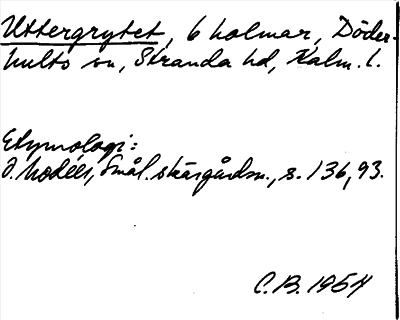 Uttergrytet, 6 holmar, Döder-
hults sn, Stranda hd, Kalm. l.
Etymologi:
J. Modéer, Smål. skärgårdsn., s. 136, 93.
C.B. 1954